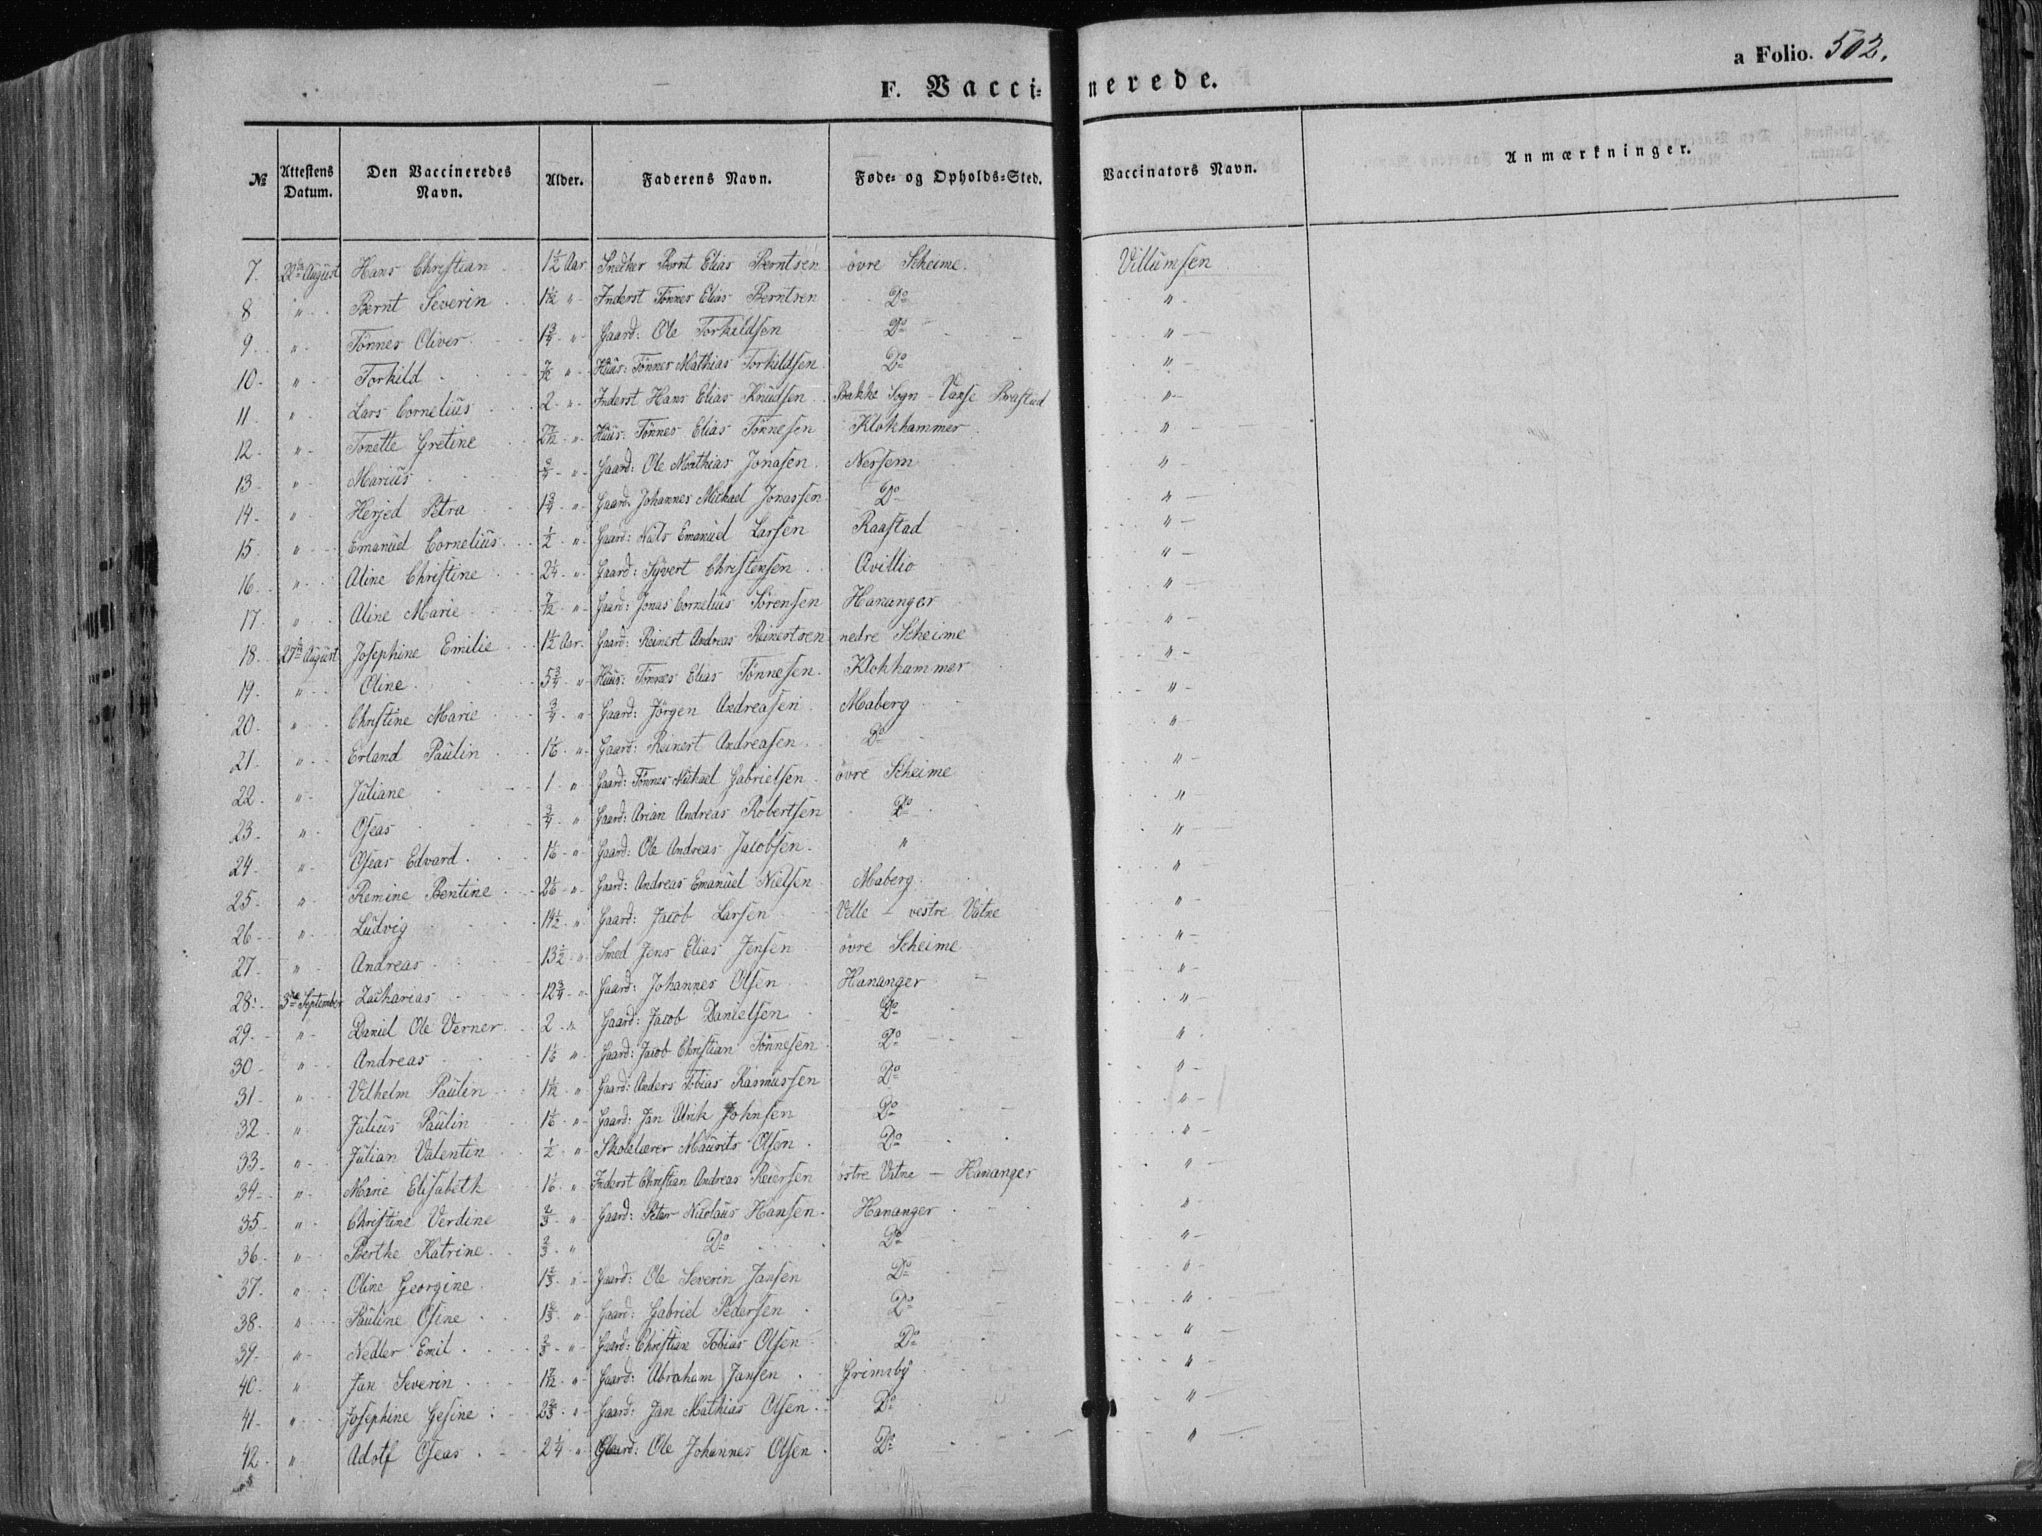 a Folio. 502.
F. Vaccinerede.
№ Attestens Datum. Den Vaccineredes Navn. Alder. Faderens Navn. Føde- og Opholds-Sted. Vaccinators Navn. Anmærkninger.
7. 22de August Hans Christian 1½ Aar Snedker Bernt Elias Berntsen övre Scheime. Villumsen
8 " Bernt Severin " Inderst Tönnes Elias Berntsen Do "
9. " Tönnes Oliver. 1¾ " Gaard: Ole Torkildsen Do "
10. " Torkild " Huus: Tönnes Mathias Torkildsen Do "
11 " Lars Cornelius 2 " Inderst Hans Elias Knudsen Bakke Sogn - Vanse Braastad "
12. " Tonette Gretine " Huus: Tönnes Elias Tönnesen Klokhammer "
13. " Marius ¾ " Gaard: Ole Mathias Jonasen Nessem "
14. " Herjed Petra 1¾ " Gaard: Johannes Michael Jonassen Do "
15. " Emanuel Cornelius ½ " Gaard: Niels Emanuel Larsen Raastad "
16. " Aline Christine 2¼ " Gaard: Syvert Christensen Qvillio "
17. " Aline Marie 7/12 " Gaard: Jonas Cornelius Sörensen Hananger "
18. 27de August Josephine Emilie 1½ Aar. Gaard: Reinert Andreas Reinertsen nedre Scheime "
19. " Oline 5¾ " Huus: Tönnes Elias Tönnesen Klokhammer "
20. " Christine Marie ¾ " Gaard: Jörgen Andreasen Maberg "
21. " Erland Paulin 1⅙ " Gaard: Reinert Andreasen Do "
22. " Juliane 1 " Gaard: Tönnes Michael Gabrielsen övre Scheime "
23. " Oseas ¾ " Gaard: Arian Andreas Robertsen Do "
24. " Oseas Edvard. 1⅙ " Gaard: Ole Andreas Jacobsen " "
25. " Remine Bentine 2⅙ " Gaard: Andreas Emanuel Nielsen Maberg. "
26. " Ludvig " Gaard: Jacob Larsen Velle - vestre Vatne "
27. " Andreas 13½ " Smed Jens Elias Jensen övre Scheime "
28. 3de September Zacharias 12¾ " Gaard: Johannes Olsen Hananger "
29. " Daniel Ole Verner 2 " Gaard: Jacob Danielsen Do "
30. " Andreas 1⅙ " Gaard: Jacob Christian Tönnesen Do "
31. " Vilhelm Paulin " Gaard: Anders Tobias Rasmussen Do "
32. " Julius Paulin 1⅙ " Gaard: Jan Ulrik Johnsen Do "
33. " Julian Valentin ½ " Skolelærer Maurits Olsen Do "
34. " Marie Elisabeth 1⅙ " Inderst Christian Andreas Reiersen östre Vatne - Hananger "
35. " Christine Verdine ⅔ " Gaard: Peter Nicolaus Hansen. Hananger "
36. " Berthe Katrine ⅔ " Do Do "
37. " Oline Georgine. 1⅔ " Gaard: Ole Severin Jansen Do "
38. " Pauline Osine 1⅔ " Gaard: Gabriel Pedersen Do "
39. " Nedler Emil ⅔ " Gaard: Christian Tobias Olsen Do "
40. " Jan Severin 1 7/12 " Gaard: Abraham Jansen Grimsby "
41. " Josephine Gesine 2⅔ " Gaard: Jan Mathias Olsen Do "
42. " Adolf Oseas 2¼ " Gaard: Ole Johannes Olsen Do "